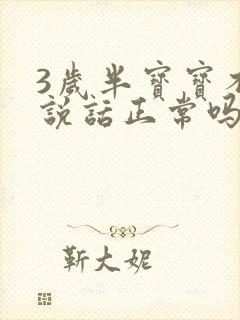 3歲半寶寶不
說話正常嗎
靳大妮